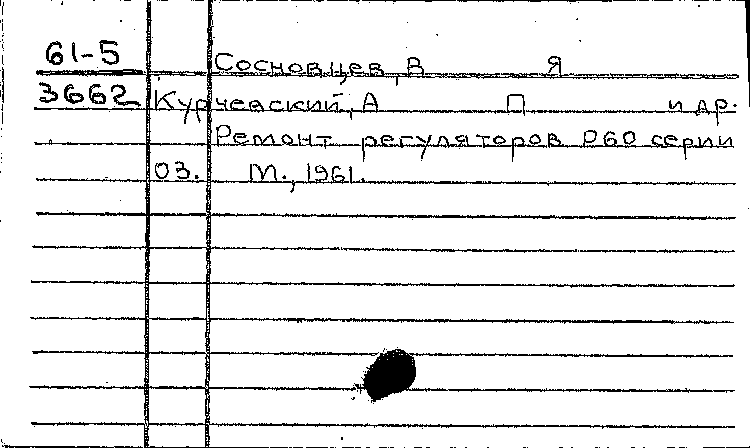 61-5 Сосновцев, В Я
3662 Курчевский, А П и др.
Ремонт регуляторов Р60 серии
03. М., 1961.